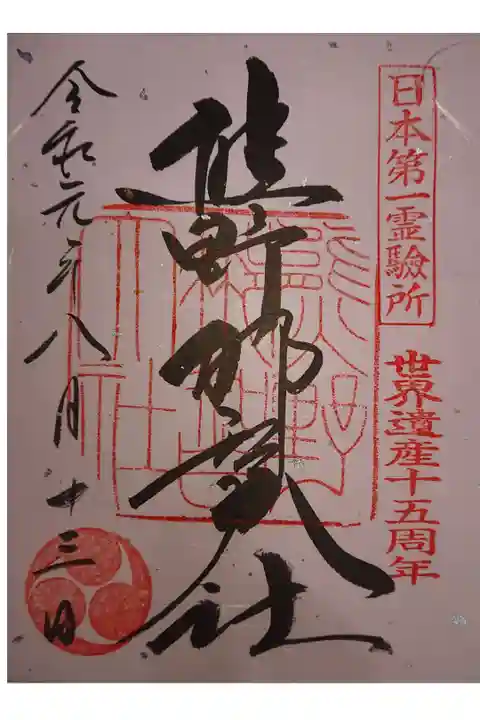 日本第一霊験所
世界遺産十五周年
熊野那智大社
令和元年八月十三日